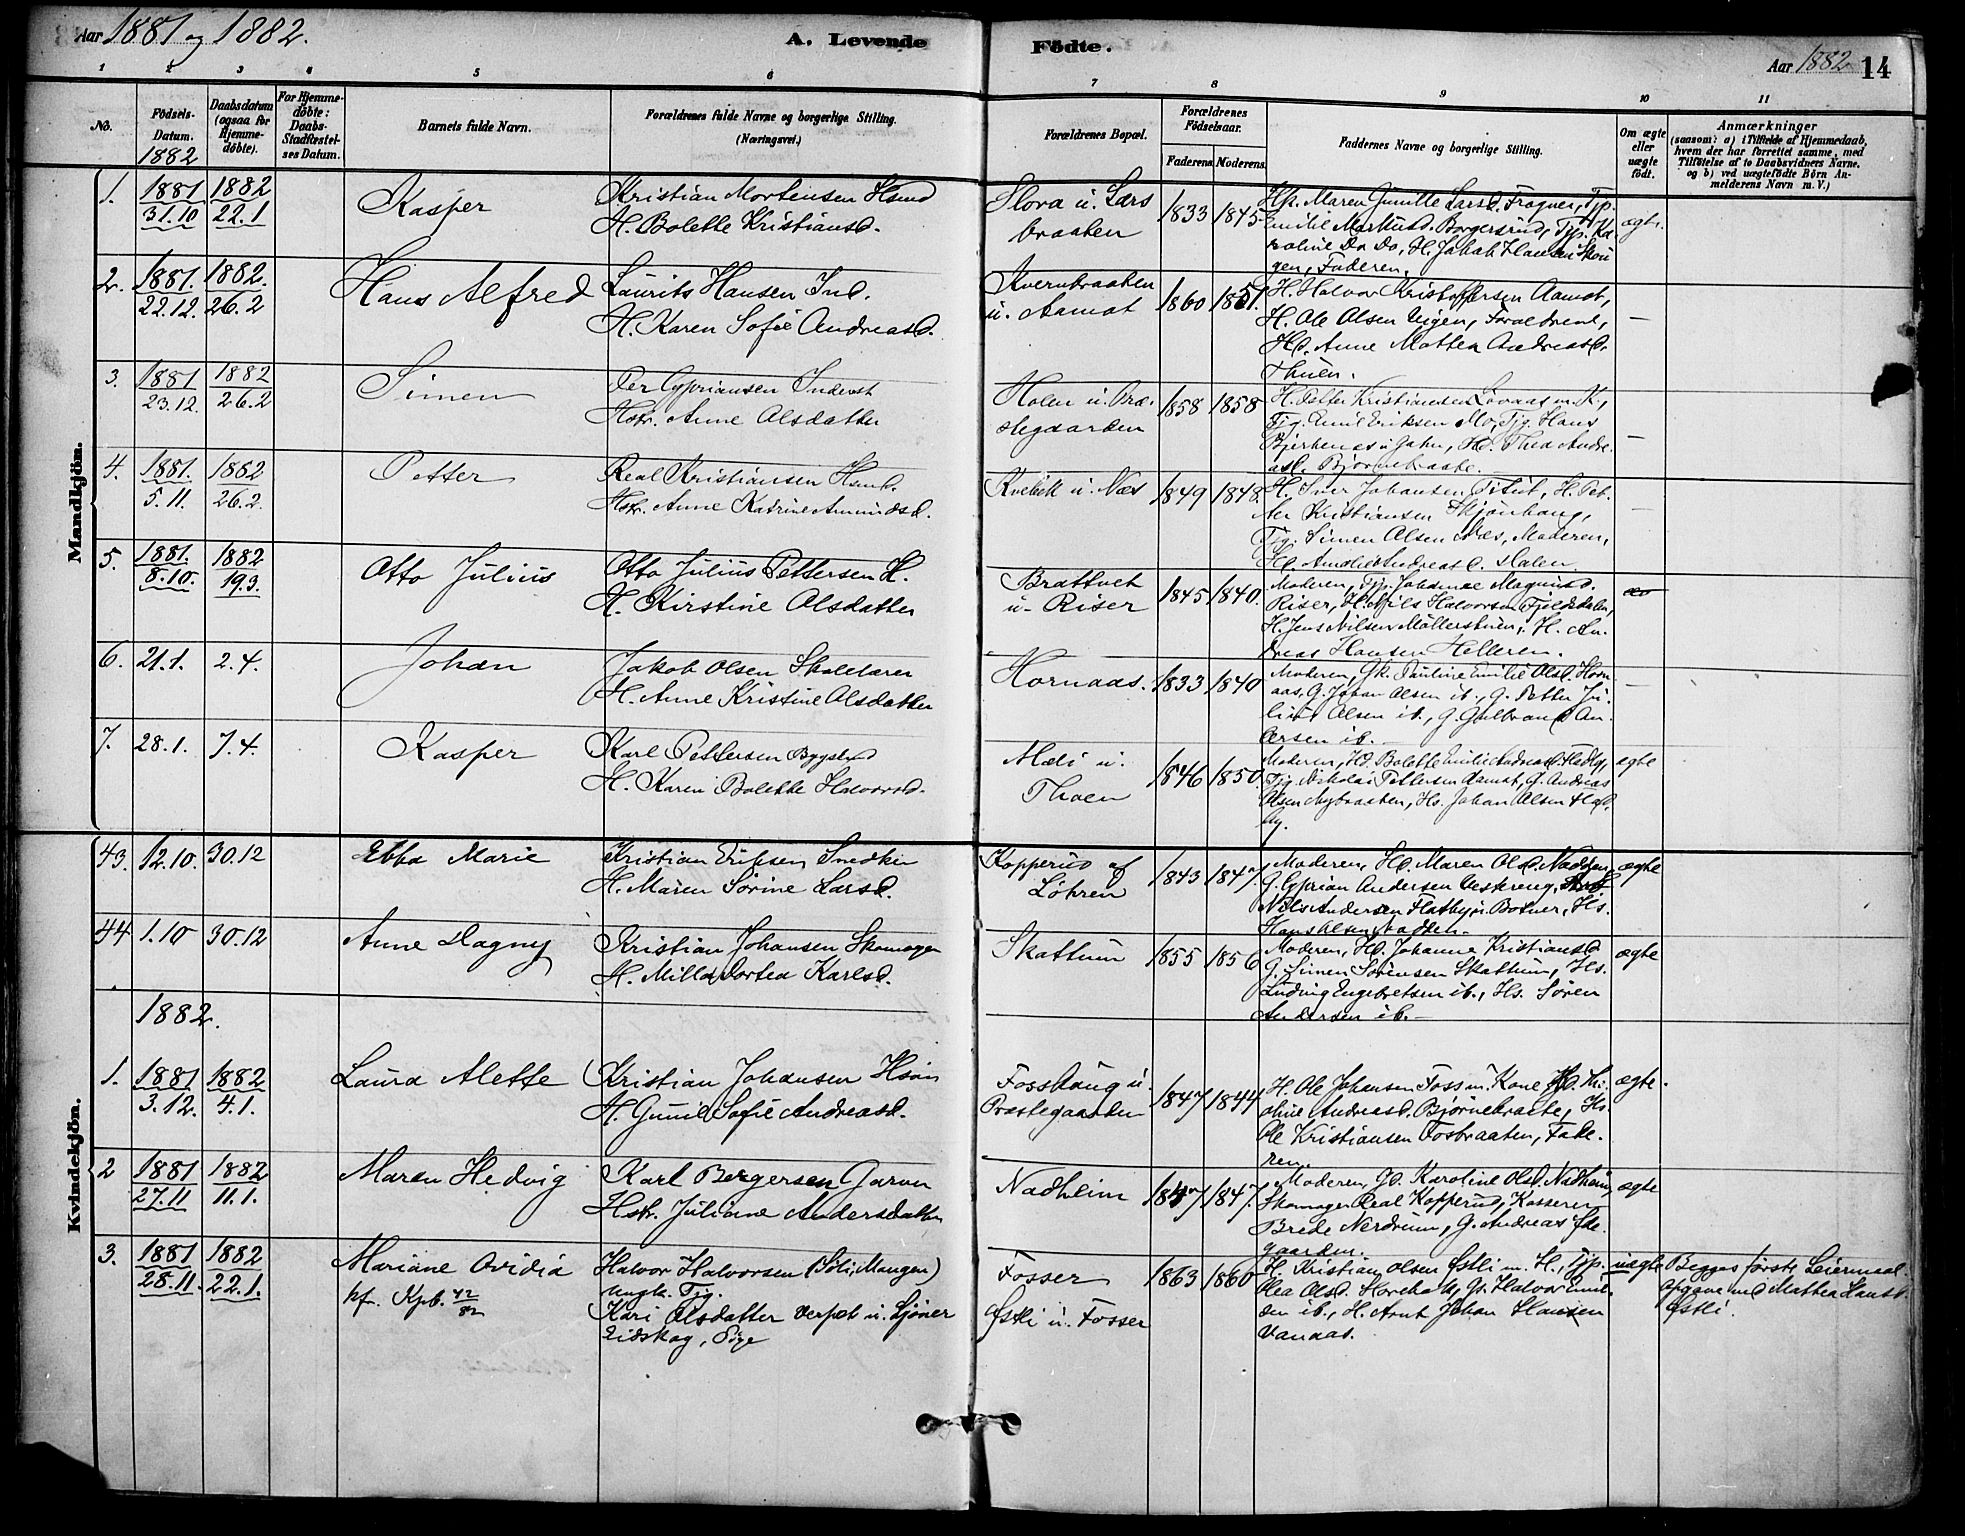 Aar 1881 og 1882.
A. Levende
Födte.
Aar 1882 14
1 2 3 4 5 6 7 8 9 10 11
No.
Födsels-
Datum.
1882
Daabsdatum
(ogsaa for
Hjemme-
döbte).
For Hjemme-
döbte:
Daabs-
Stadfæstel-
ses Datum.
Barnets fulde Navn.
Forældrenes fulde Navne og borgerlige Stilling.
(Næringsvei.)
Forældrenes Bopæl.
Forældrenes
Födselsaar.
Faderens. Moderens.
Faddernes Navne og borgerlige Stilling.
Om ægte
eller
uægte
födt.
Anmærkninger
(saasom: a) i Tilfælde af Hjemmedaab,
hvem der har forrettet samme, med
Tilföielse af to Daabsvidners Navne.
og b) ved uægtefödte Börn An-
melderens Navn m. V.)
Mandkjön.
1. 1881 31.10 1882 22.1
Kasper
Kristian Mortensen Hsmd
H. Bolette Kristiansd.
Slora u. Lars
braaten
1833 1845
Hk. Maren Gunille Larsd. Fragner, Tjp.
Emilie Markusd. Borgersrud, Tjp. Ka-
roline Do Do, H. Jakob Hansen Skou
gen, Faderen.
ægte.
2. 1881. 22.12. 1882. 26.2
Hans Alfred
Laurits Hansen Ind.
H. Karen Sofie Andreasd.
Kvernbraaten
u. Aamot
1860 1851.
H. Halvor Kristoffersen Aamot,
H. Ole Olsen Uigen, Forældrene,
Hd. Anne Mathea Andreasd.
Thuen.
—
3. 1881 23.12. 1882 26.2
Simen
Per Cypriansen Inderst
Hstr. Anne Olsdatter
Holen u. Præ-
stegaarden
1858 1858
H. Petter Kristiansen Lovaas m. K.,
Tjg. Emil Eriksen Mo, Tjg. Hans
Bjerkenæs u. Gahn, Hd. Thea Andre-
asd. Bjørnebraate.
—
4. 1881. 5.11. 1882 26.2.
Petter
Real Kristiansen Hsmd.
Hstr. Anne Katrine Amundsd.
Kvebek u. Næs
1849 1848.
H. Iver Johansen Titut, H. Pet-
ter Kristiansen Skjønhaug,
Tjg. Simen Olsen Næs, Moderen,
Hd. Amalie Andreasd. Dalen
—
5. 1881. 8.10. 1882 19.3.
Otto Julius
Otto Julius Pettersen H.
H. Kirstine Olsdatter
Brattvet
u. Riser
1845 1840.
Moderen, Tjp. Johanne Magnusd.
Riser, H. Nils Halvorsen Fjeldsdalen,
H. Jens Nilsen Møllerstuen, H. An-
dreas Hansen Helleren.
6. 21.1. 2.4.
Johan
Jakob Olsen Skolelærer
H. Anne Kristine Olsdatter
Hornaas.
1833 1840
Moderen, Gk. Pauline Emilie Olsd. Horn
aas, G. Johan Olsen ib., G. Petter Ju-
lius Olsen ib., G. Gulbrand An-
dersen ib.
—
7. 28.1. 7.4.
Kasper
Karl Pettersen Bygslmd
H. Karen Bolette Halvorsd.
Mæli u.
Thoen
1846 1850.
Moderen, Hd. Bolette Emilie Andreasd. Hadly,
Tjg. Nikolai Pettersen Aamot, G. Andreas
Olsen Nybraaten, Hs. Johan Olsen Had-
ly.
ægte
Kvindekjön.
43. 12.10. 30.12
Ebba Marie
Kristian Eriksen Snedker
H. Maren Sørine Larsd.
Kopperud af
Løhren
1843 1847.
Moderen, Hd. Maren Olsd. Nadden,
G. Cyprian Andersen Vestereng,
Nils Andersen Hatby u. Botner, Hs.
Hans Olsen Nadden.
ægte
44 1.10 30.12
Anne Dagny
Kristian Johansen Skomager
H. Milla Dortea Karlsd.
Skattum
1855 1856
Moderen, Hd. Johanne Kristiansd.
G. Simen Sørensen Skattum, Hs.
Ludvig Engebretsen ib., Hs. Søren
Andersen ib.
ægte
1882.
1. 1881 3.12. 1882 4.1.
Laura Alette
Kristian Johansen Hsm
H. Gunil Sofie Andreasd.
Fosshaug u.
Præstegaarden
1847 1844
H. Ole Johansen Foss m. Kone, Hd. Thi-
oline Andreasd. Bjørnebraate, Hs.
Ole Kristiansen Fosbraaten, Fade-
ren.
ægte.
2 1881 27.11 1882 11.1.
Maren Hedvig
Karl Bergersen Garver
Hstr. Juliane Andersdatter
Nadheim
1847 1847.
Moderen, Gd. Karoline Olsd. Nadheim,
Skomager Real Kopperud, Kasserer
Brede Nerdrum, G. Andreas Ide-
gaarden.
ægte
3. 1881 28.11. 1882 22.1.
Mariane Ovidia
kf. Kpb. 42/82
Halvor Halvorsen (Søli, Mangen)
ungk. Tjg.
Kari Olsdatter Verpet u. Sjøner
Eidskog, Pige
Fosser
Østli u. Fosser
1863 1860
H. Kristian Olsen Østli m. H., Tjp.
Olea Olsd. Skorebak, G. Halvor Emil-
sen ib., H. Arnt Johan Hansen
Vanaas.
uægte
Begges første Leiermaal.
Opgave ved Mathea Hansd.
Østli.